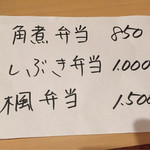 角煮弁当 850
しぶき弁当 1.000
楓弁当 1.500